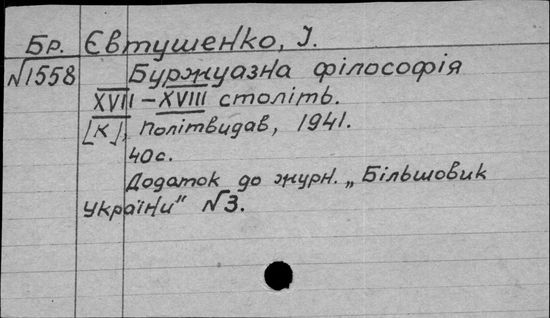 Бр. Євтушенко, І.
№1558 Буржуазна філософія
XVII – XVIII століть.
[К], Політвидав, 1941.
40с.
Додаток до журн. „Більшовик
України" №3.